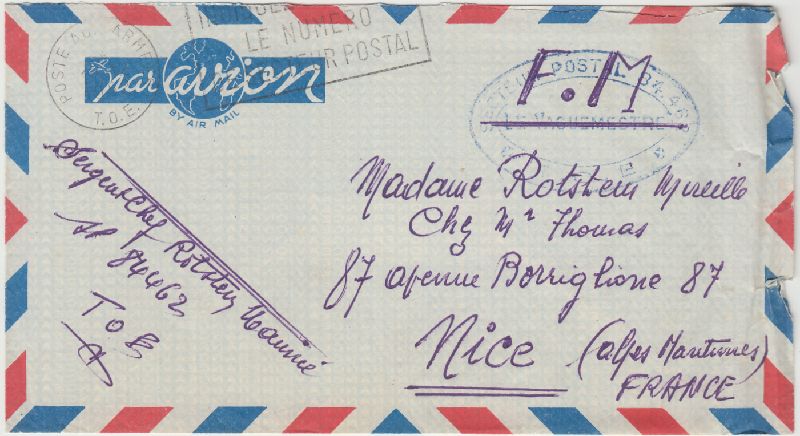 POSTE AUX ARMEES
T.O.E.
LE NUMERO
POSTAL
par avion
BY AIR MAIL
F.M
POSTAL 84.462
LE VAGUEMESTRE
Madame Rotstein Mireille
Chez Mr Thomas
87 avenue Borriglione 87
Nice (Alpes Maritimes)
FRANCE
Sergent Chef Rotstein Maurice
SP 84462
TOE